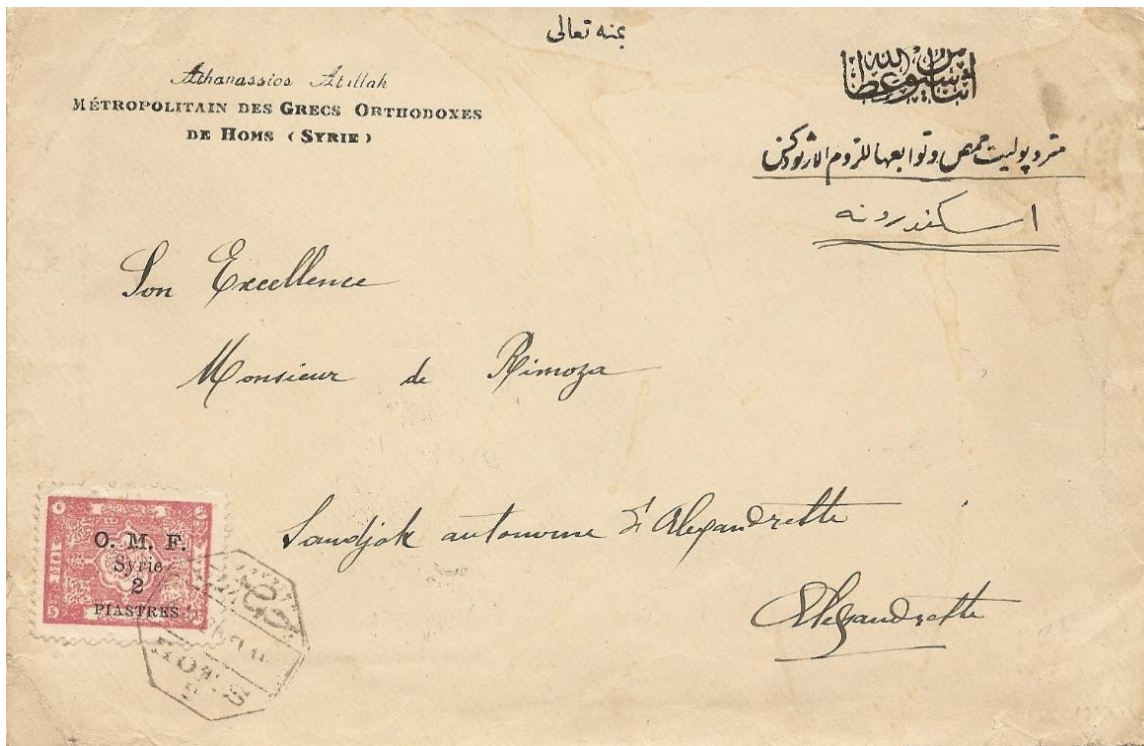 بمنه تعالى
Athanassios Atillah
MÉTROPOLITAIN DES GRECS ORTHODOXES
DE HOMS (SYRIE)
اثناسيوس عطا الله
متروبوليت حمص وتوابعها للروم الارثوذكس
اسكندرونه
Son Excellence
Monsieur de Rimoza
Sandjak autonome d'Alexandrette
Alexandrette
O. M. F.
Syrie
2
PIASTRES
HOMS